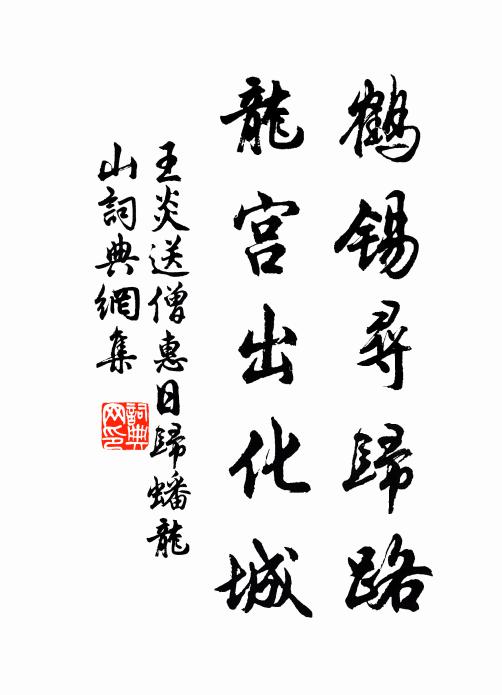 鶴錫尋歸路
龍宮出化城
王炎送僧惠日歸蟠龍
山詞典網集
詞典
网印